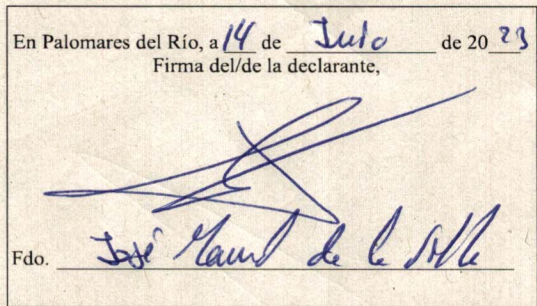 En Palomares del Río, a 14 de Julio de 2023
Firma del/de la declarante,
Fdo. José Manuel de la